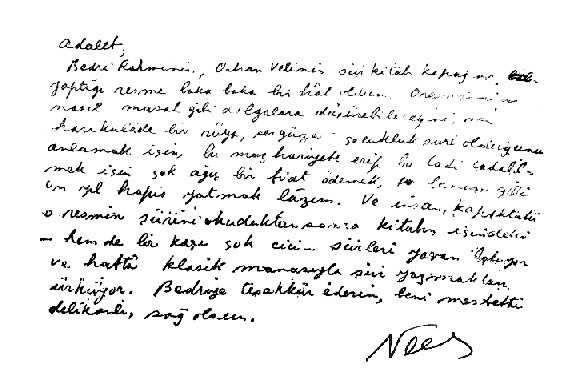 Adalet,
Bedri Rahminin, Orhan Velinin şiir kitabı kapağına
yaptığı resme baka baka bir hâl oldum.
nasıl masal gibi dalgalara düşürebileceğini,
harikulâde bir rüya, çocukluk
anlamak için, bu tadı tadabil-
mek için çok ağır bir fiat ödemek, benim gibi
on yıl hapis yatmak lâzım. Ve insan, kapaktaki
o resmin şiirini okuduktan sonra kitabın içindeki
– hem de bir kaçı çok cici – şiirleri yavan buluyor
ve hattâ klasik manasıyla şiir yazmaktan
ürküyor. Bedriye teşekkür ederim, beni mestetti
delikanlı, sağ olsun.